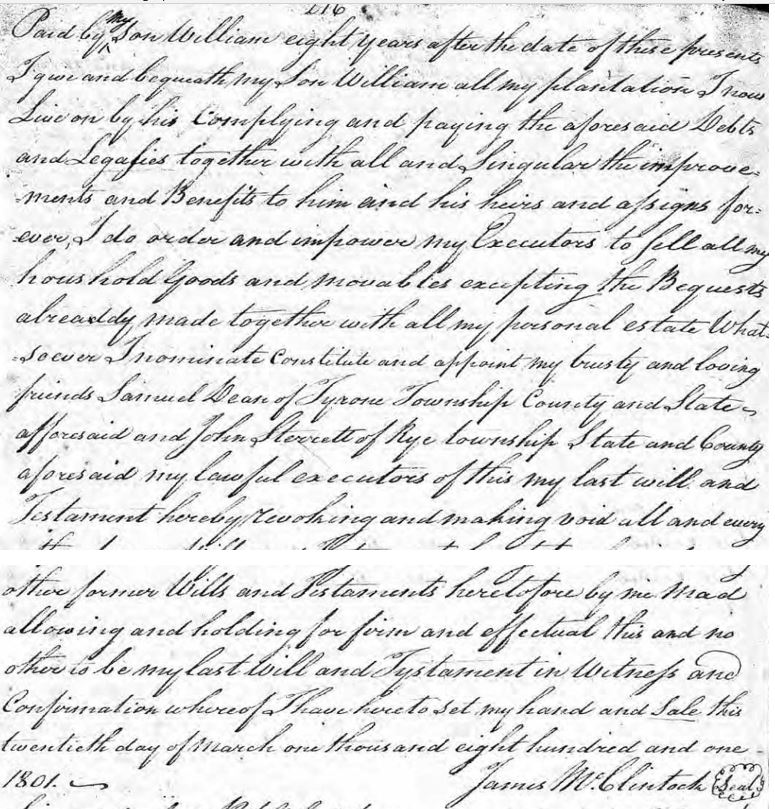 216
Paid by my Son William eight years after the date of these presents
I give and bequeath my Son William all my plantation I now
Live on by his Complying and paying the aforesaid Debts
and Legasies together with all and Singular the improve=
=ments and Benefits to him and his heirs and assigns for=
=ever, I do order and impower my Executors to Sell all my
houshold Goods and movables excepting the Bequests
alreaddy made together with all my personal estate What=
=soever I nominate Constitute and appoint my trusty and loving
friends Samuel Dean of Tyrone Township County and State
afforesaid and John Sterrett of Rye township State and County
aforesaid my lawful executors of this my last will and
Testament hereby revoking and making void all and every
other former Wills and Testaments heretofore by me Mad
allowing and holding for firm and effectual this and no
other to be my last Will and Tystament in Witness and
Confirmation whereof I have hereto Set my hand and Sale this
twentieth day of March one thousand eight hundred and one
1801. James McClintock Seal